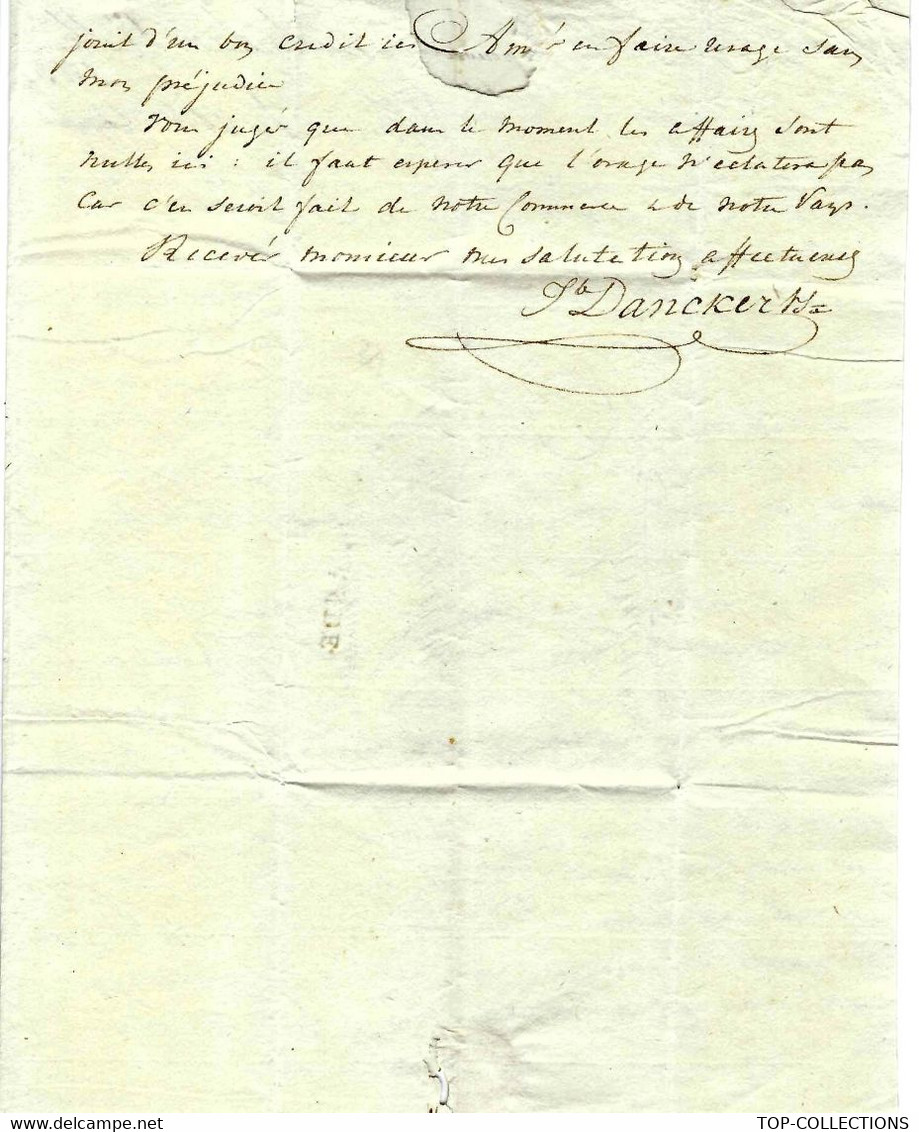 jouit d'un bon credit ici faire usage sans
mon préjudice
Vous jugés que dans le moment les affaires sont
nulles ici : il faut esperer que l'orage n'eclatera pas
Car c'en seroit fait de notre Commerce & de notre Pays.
Recevés monsieur mes salutations affectueuses
Danckerts
TOP-COLLECTIONS
www.delcampe.net